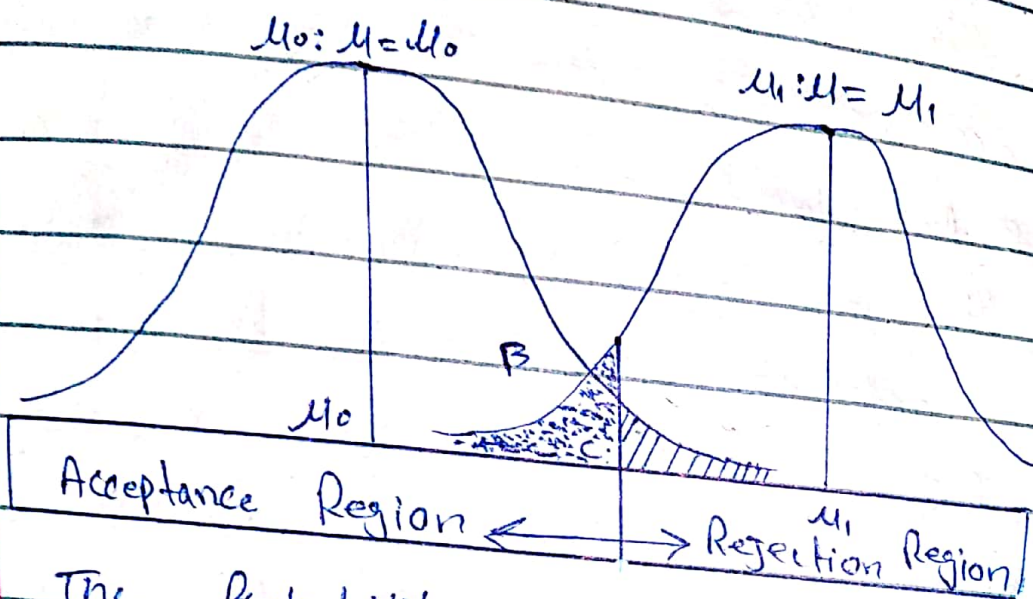 μ₀: μ = μ₀
μ₁: μ = μ₁
β
μ₀
C
μ₁
Acceptance Region
Rejection Region
The